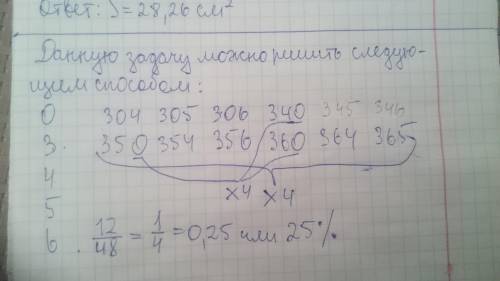 Ответ: S = 28,26 см²
Данную задачу можно решить следую-
щем способом:
0 304 305 306 340 345 346
3. 350 354 356 360 364 365
4
x4 x4
5
6. 12/48 = 1/4 = 0,25 или 25%